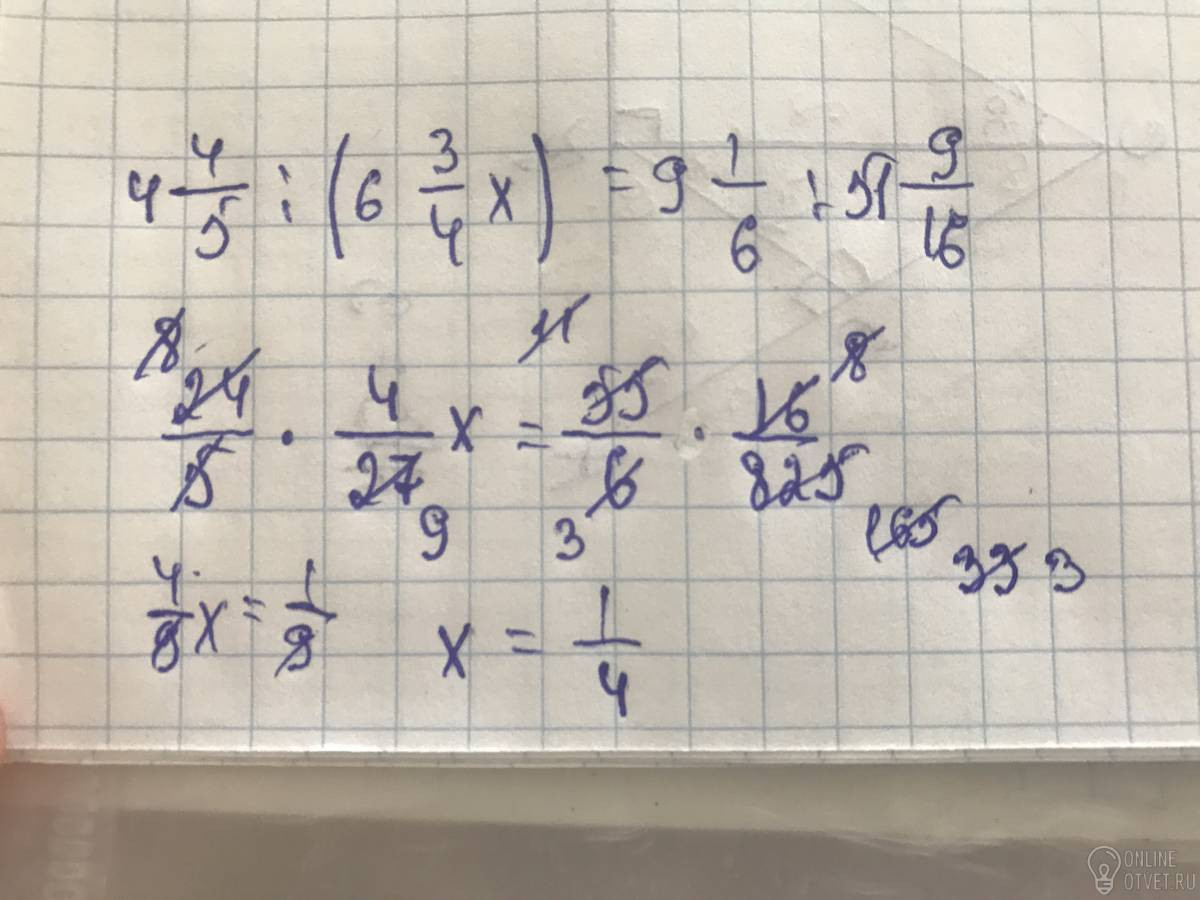 4 4/5 : (6 3/4 x) = 9 1/6 : 51 9/16
8 11 8
24/5 · 4/27 x = 55/6 · 16/825
9 3 165 33 3
4/9 x = 1/9 x = 1/4
ONLINE
OTVET.RU